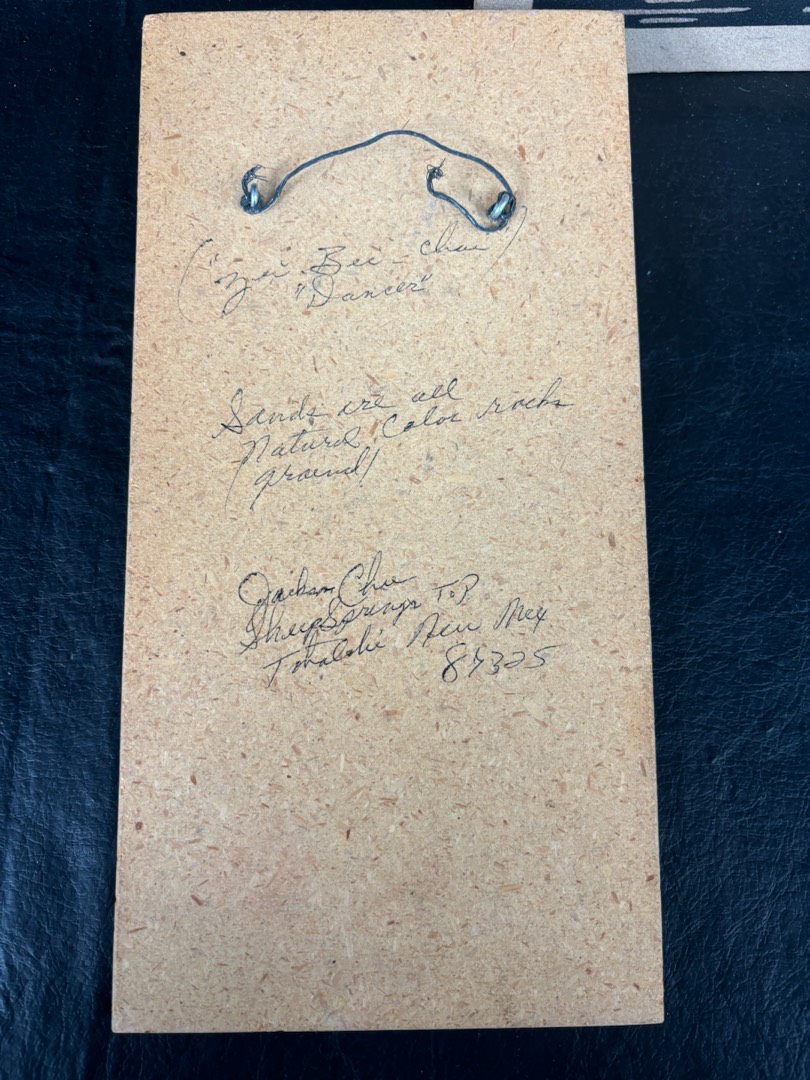 ("Yei Bee - chai")
"Dancer"
Sands are all
Natural Color rocks
(ground)
Jackson Chee
Sheep Springs T.P
Tohatchi New Mex
87325